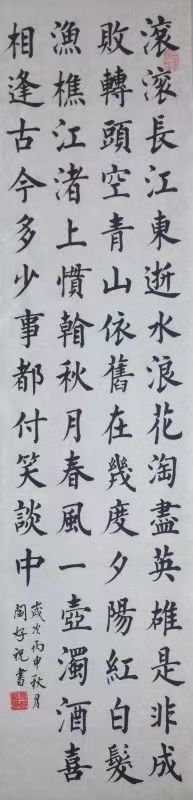 滚滚長江東逝水浪花淘盡英雄是非成
敗轉頭空青山依舊在幾度夕陽紅白髮
漁樵江渚上慣翰秋月春風一壺濁酒喜
相逢古今多少事都付笑談中
歲次丙申秋月
閻好祝書